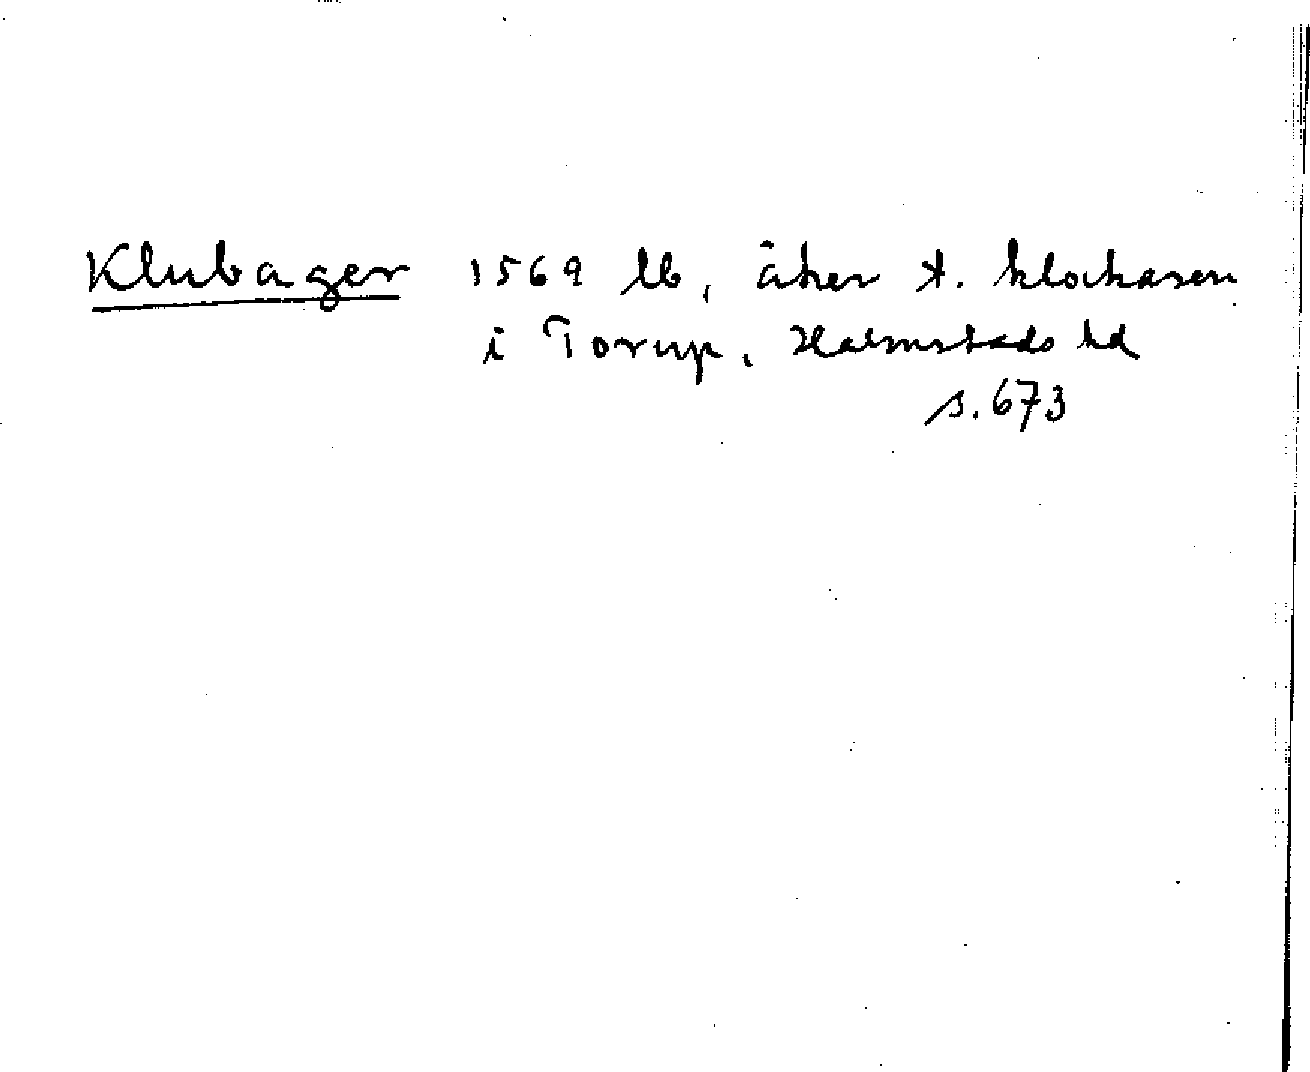 Klubager 1569 lb, åker t. klockaren
i Torup, Halmstads hd
s. 673